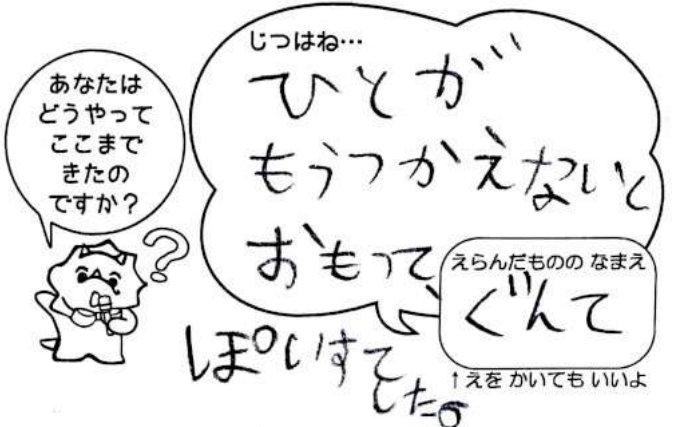 あなたは
どうやって
ここまで
きたの
ですか？
?
じつはね…
ひとが
もうつかえないと
おもって、
ぽいすて
した。
えらんだものの なまえ
ぐんて
↑えを かいても いいよ